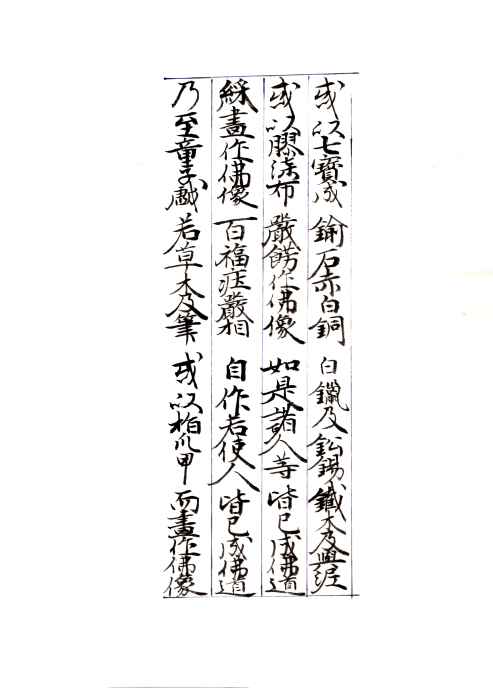 或以七寶成鍮石赤白銅白鑞及鈆錫鐵木及與泥
或以膠漆布嚴餝作佛像如是諸人等皆已成佛道
綵畫作佛像百福庄嚴相自作若使人皆已成佛道
乃至童子戲若草木及筆或以指爪甲而畫作佛像